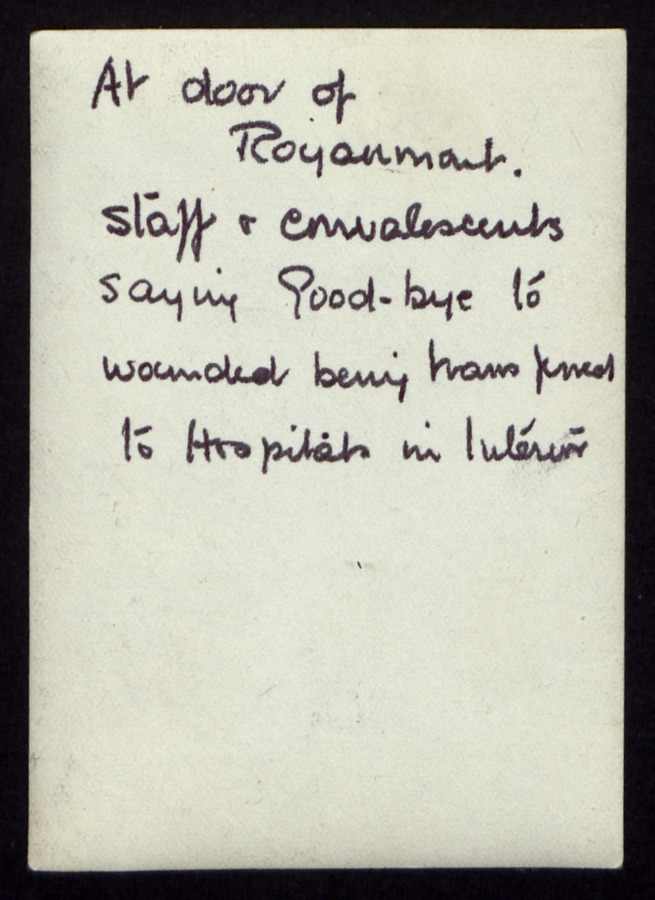 At door of
Royaumont.
Staff + convalescents
saying Good-bye to
wounded being transferred
to Hospitals in Interior